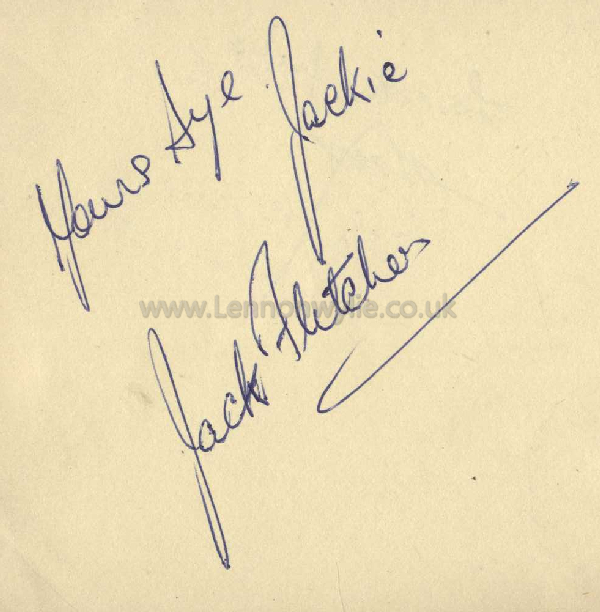 Yours Aye Jackie
www.Lennonwylie.co.uk
Jack Fletcher